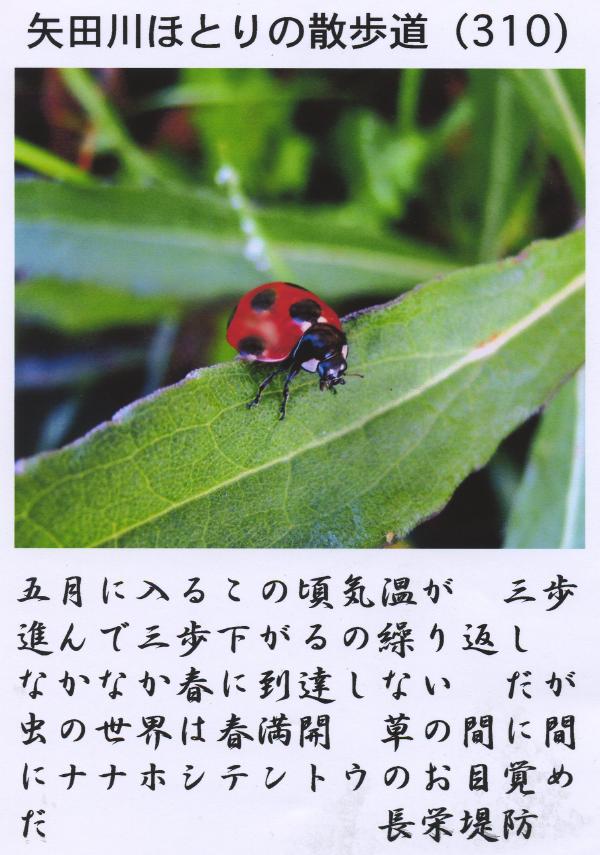 矢田川ほとりの散歩道（310）
五月に入るこの頃気温が　三歩
進んで三歩下がるの繰り返し
なかなか春に到達しない　だが
虫の世界は春満開　草の間に間
にナナホシテントウのお目覚め
だ　　　　　　　　長栄堤防